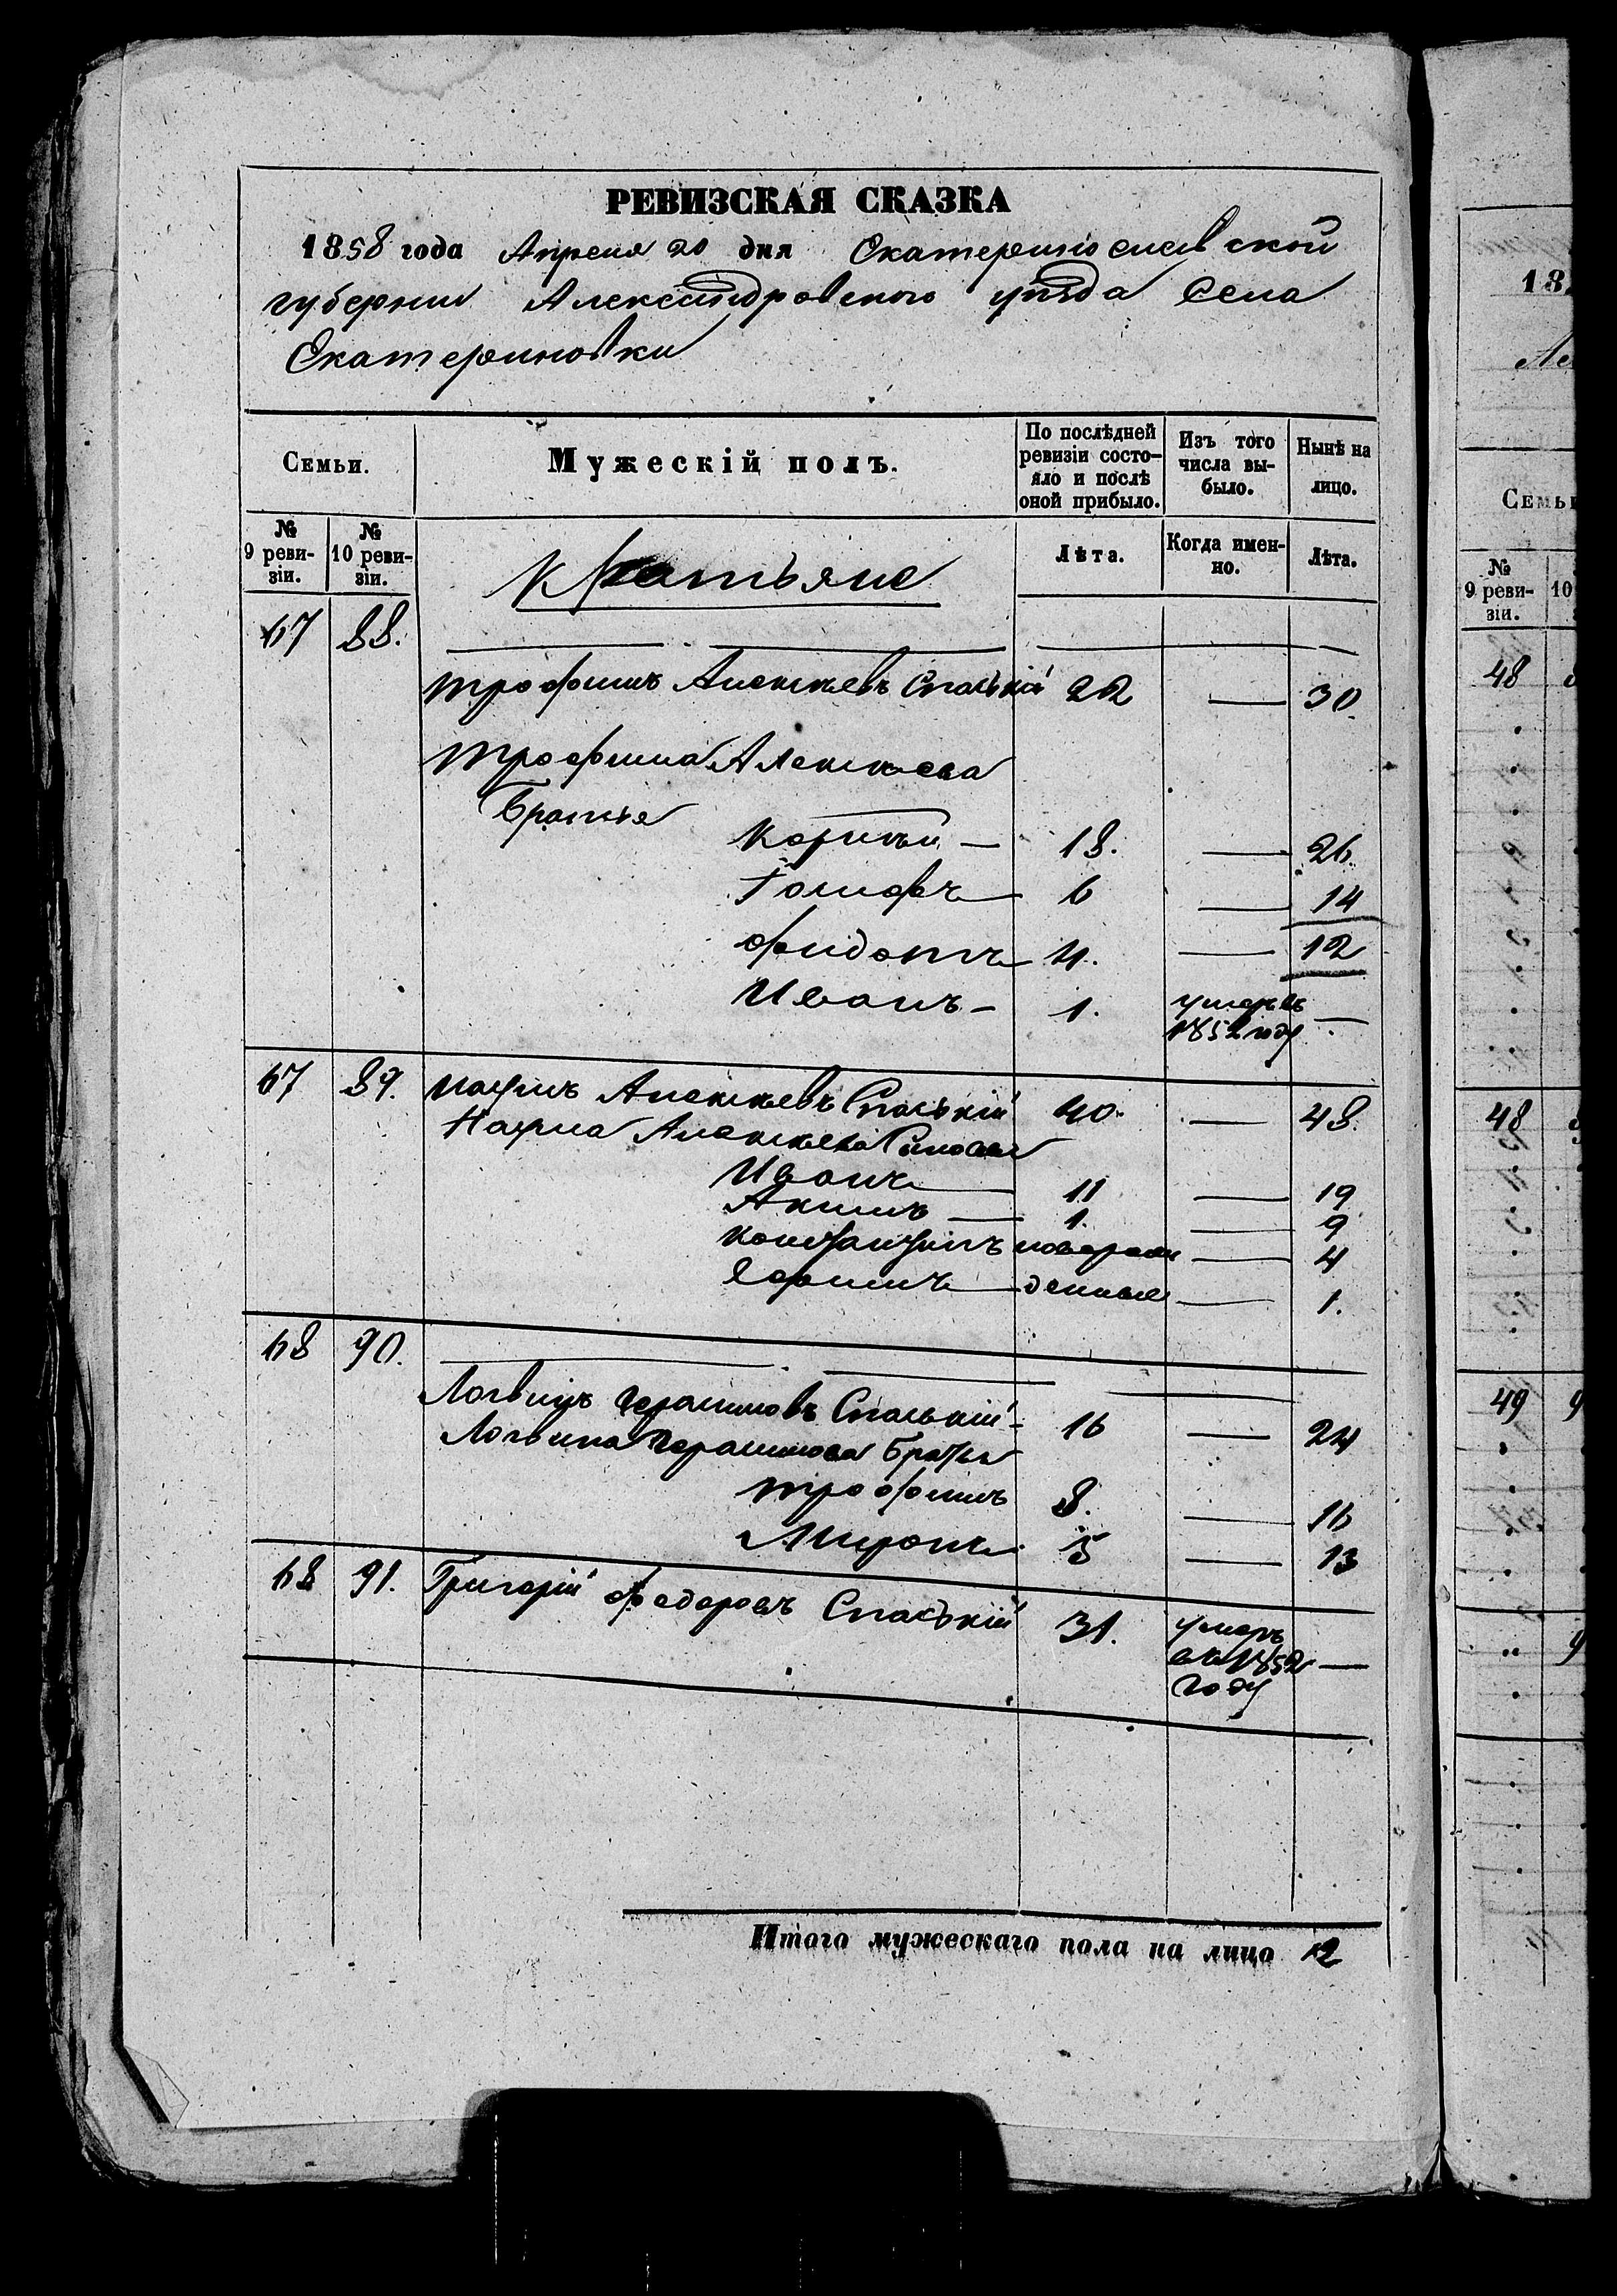 РЕВИЗСКАЯ СКАЗКА
1858 года Апреля 20 дня Екатеринославской
губернии Александровского уѣзда Села
Екатериновки
Семьи. Мужескій полъ. По послѣдней ревизіи состо-яло и послѣ оной прибыло. Изъ того числа вы-было. Нынѣ на лицо.
№ 9 реви-зіи. № 10 реви-зіи. Лѣта. Когда имен-но. Лѣта.
67 88.
Трофимъ Алексѣевъ Спаській 22 — 30
Трофима Алексѣева
Братья
Корнѣй — 18. — 26.
Іосифъ 6 — 14
Фидотъ 4. — 12
Иванъ — 1. умеръ въ 1852 году —
67 89. Наумъ Алексѣевъ Спаській 40. — 48.
Наума Алексѣева Сыновья
Иванъ 11 — 19
Акимъ — 1. — 9
Константинъ новорож — 4
Ефимъ денные — 1.
68 90.
Логвинъ Герасимовъ Спаській — 16 — 24
Логвина Герасимова Братья
Трофимъ 8. — 16
Миронъ 5 — 13
68 91. Григорій Федоровъ Спаській 31. умеръ въ 1852 году —
Итого мужескаго пола на лицо 12
18
Семьи
№ 9 реви-зіи. 10
48
48
49